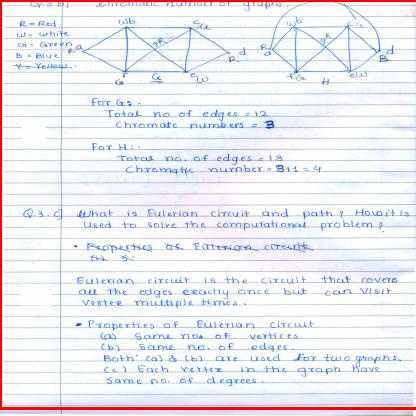 Q.3 b) chromatic number of graphs.
R = Red
W = White
G = Green
B = Blue
Y = Yellow
W b
c G
a R
g R
d R
f G
G
e W
W b
c G
R a
g R
d B
f G
H
e W
For G: -
Total no of edges = 12
Chromatc numbers = 3
For H: -
Total no. of edges = 13
Chromatic number = 3+1 = 4
Q.3. c) What is Eulerian circuit and path? How it is
used to solve the computational problem?
• Properties of Eulerian circuit
Eulerian circuit is the circuit that covers
all the edges exactly once but can visit
vertex multiple times.
• Properties of Eulerian circuit
(a) Same no. of vertices.
(b) Same no. of edges.
Both (a) & (b) are used for two graphs.
(c) Each vertex in the graph have
same no. of degrees.